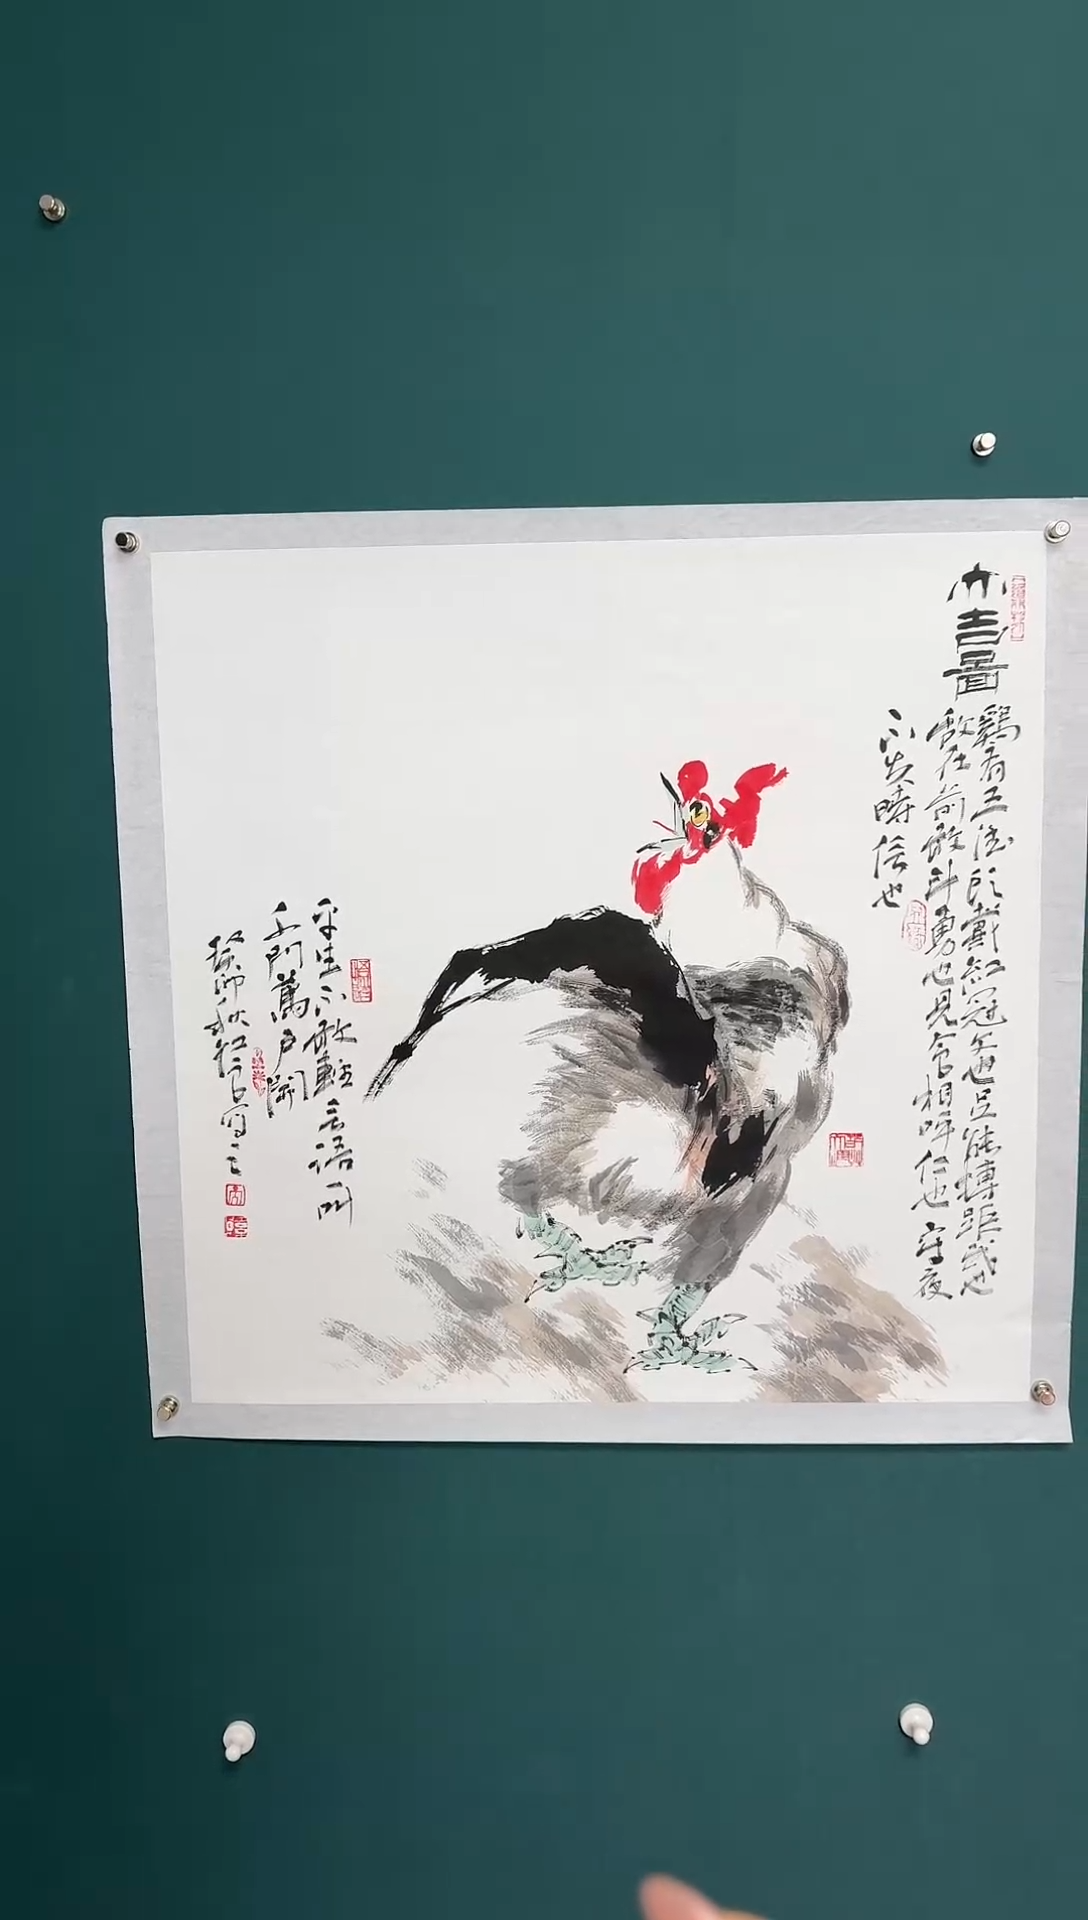 大吉圖
鷄有五德頭戴紅冠文也足能搏距武也
敵在前敢鬥勇也見食相呼仁也守夜
不失時信也
平生不敢輕言語叫
千門萬户開
癸卯秋
寫之